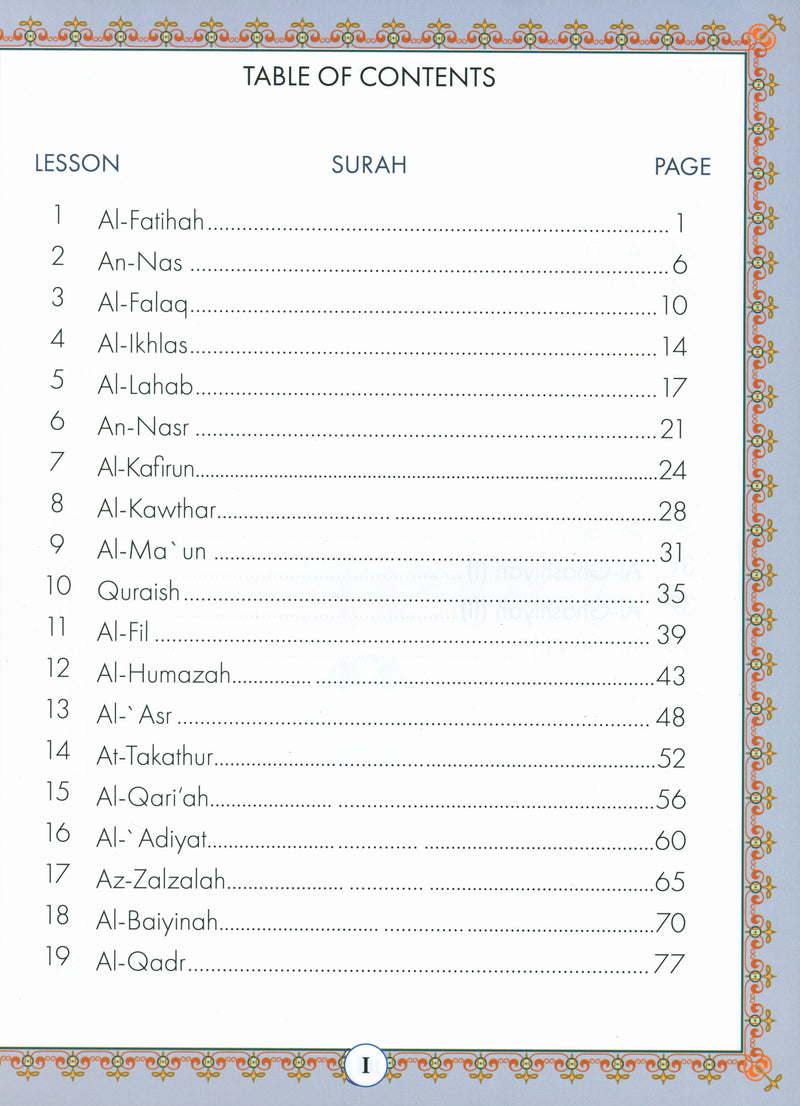 TABLE OF CONTENTS
LESSON SURAH PAGE
1 Al-Fatihah 1
2 An-Nas 6
3 Al-Falaq 10
4 Al-Ikhlas 14
5 Al-Lahab 17
6 An-Nasr 21
7 Al-Kafirun 24
8 Al-Kawthar 28
9 Al-Ma`un 31
10 Quraish 35
11 Al-Fil 39
12 Al-Humazah 43
13 Al-`Asr 48
14 At-Takathur 52
15 Al-Qari‘ah 56
16 Al-`Adiyat 60
17 Az-Zalzalah 65
18 Al-Baiyinah 70
19 Al-Qadr 77
I